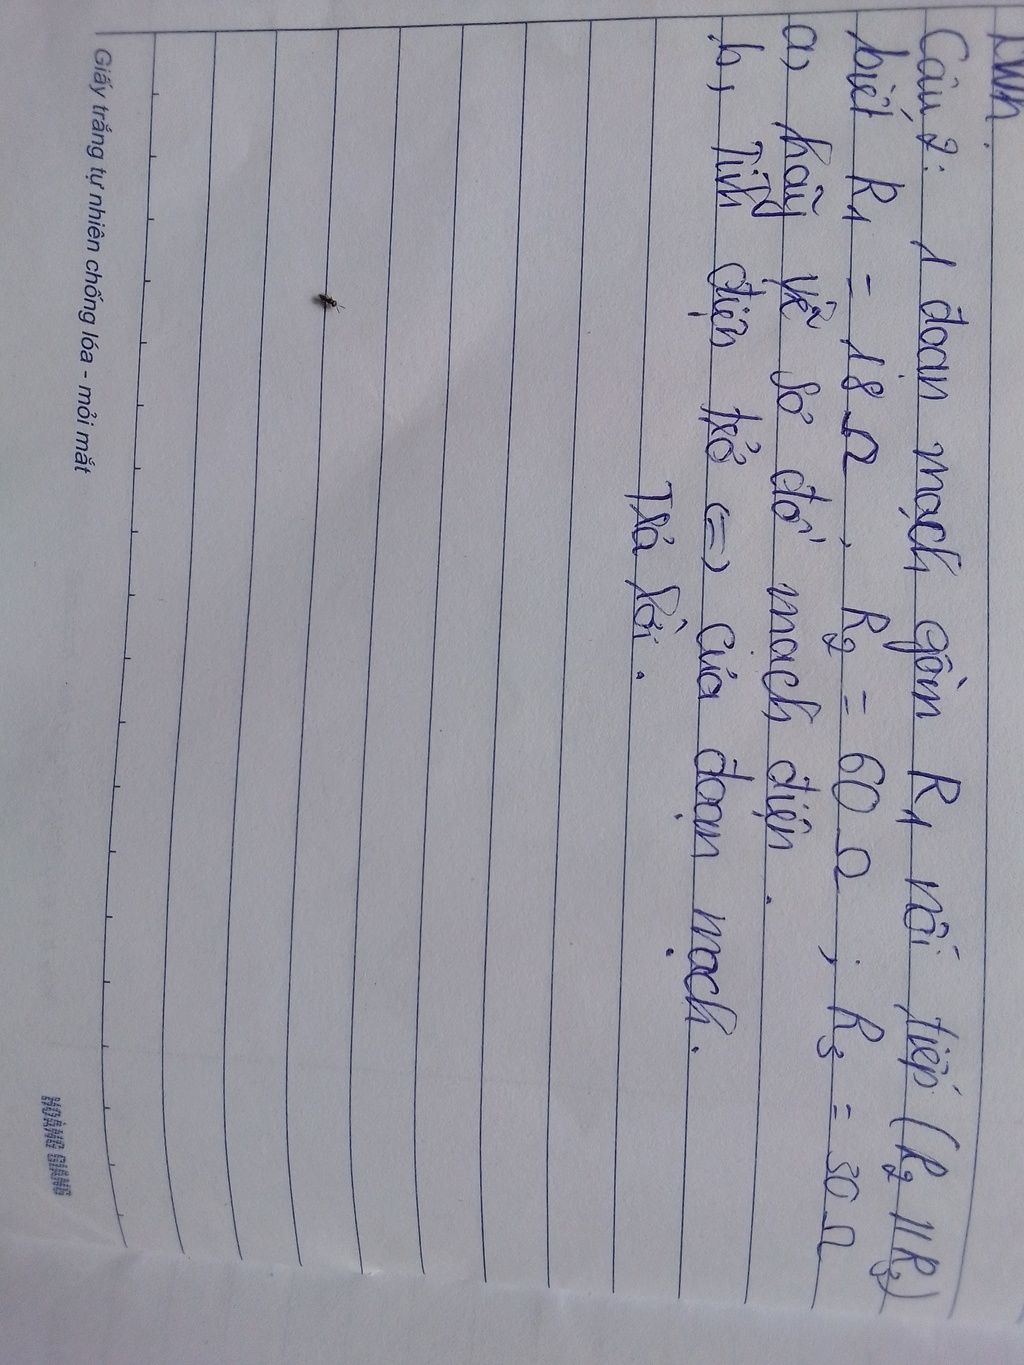 Câu 2: 1 đoạn mạch gồm R1 nối tiếp (R2 // R3)
biết R1 = 18 Ω, R2 = 60 Ω; R3 = 30 Ω
a, hãy vẽ sơ đồ mạch điện.
b, Tính điện trở (=) của đoạn mạch.
Trả lời.
Giấy trắng tự nhiên chống lóa - mỏi mắt
HOÀNG GIANG